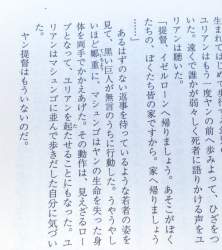 生まれてはじめて
ユリアンはもう一度ヤンの前へ歩みよって、ひざまず
いた。遠くで誰かが弱々しく死者に語りかける声をユ
リアンは聴いた。
「提督、イゼルローンへ帰りましょう。あそこがぼく
たちの、ぼくたち皆の家ですから。家へ帰りましょう
……」
あるはずのない返事を待っているような若者の姿を
見て、黒い巨人が無言のうちに行動した。うやうやし
いほど鄭重に、マシュンゴはヤンの生命を失った身
体を両手でかかえあげた。その動作は、見えざるロー
プとなって、ユリアンを起たせることにもなった。ユ
リアンはマシュンゴに並んで歩きだした自分に気づい
た。
ヤン提督はもういないのだ。